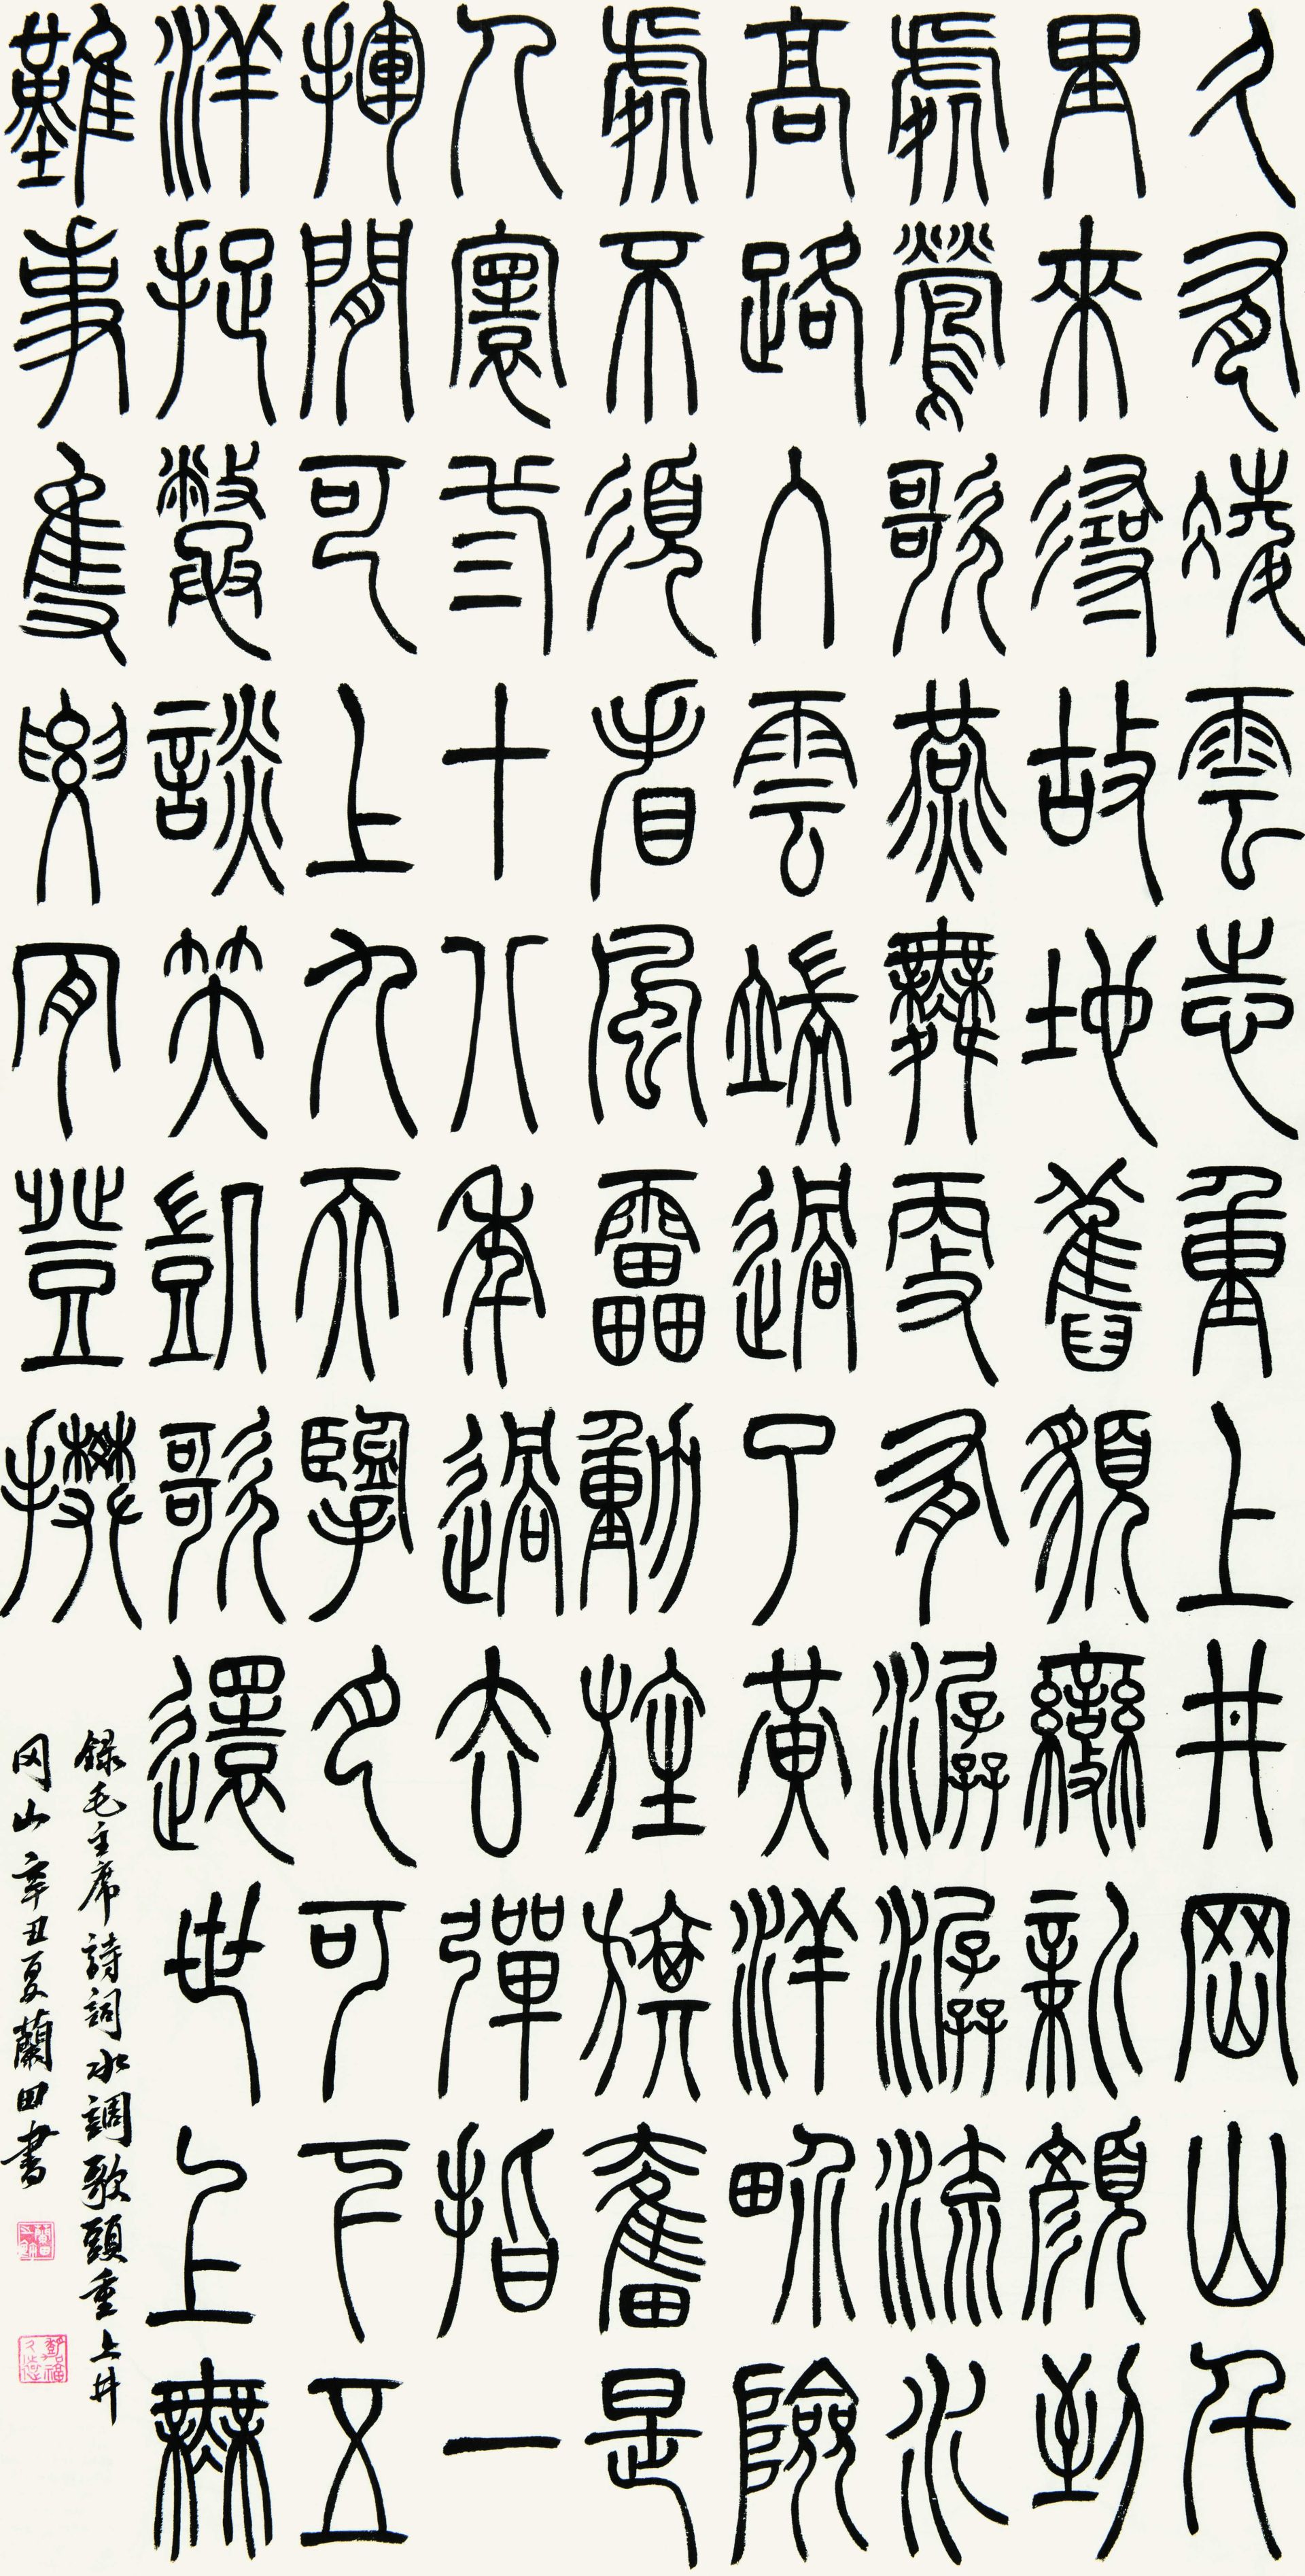 久有凌雲志重上井岡山千
里來尋故地舊貌變新顏到
處鶯歌燕舞更有潺潺流水
高路入雲端過了黃洋畍險
處不須看風雷動旌旗奮是
人寰弎十八年過去彈指一
揮間可上九天攬月可下五
洋捉鱉談笑凱歌還世上無
難事隻要肯登攀
録毛主席詩詞水調歌頭重上井
冈山辛丑夏蘭田書